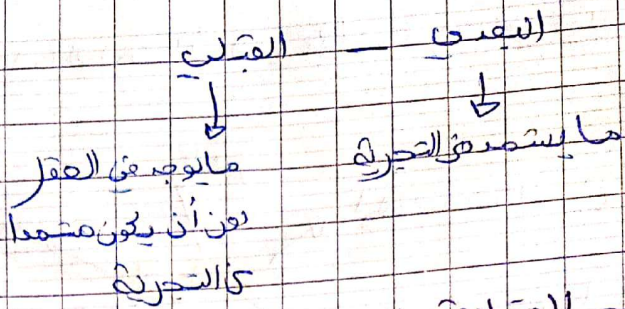 البعدي — القبلي
ما يستمد من التجربة
ما يوجد في العقل
دون أن يكون مستمدا
من التجربة